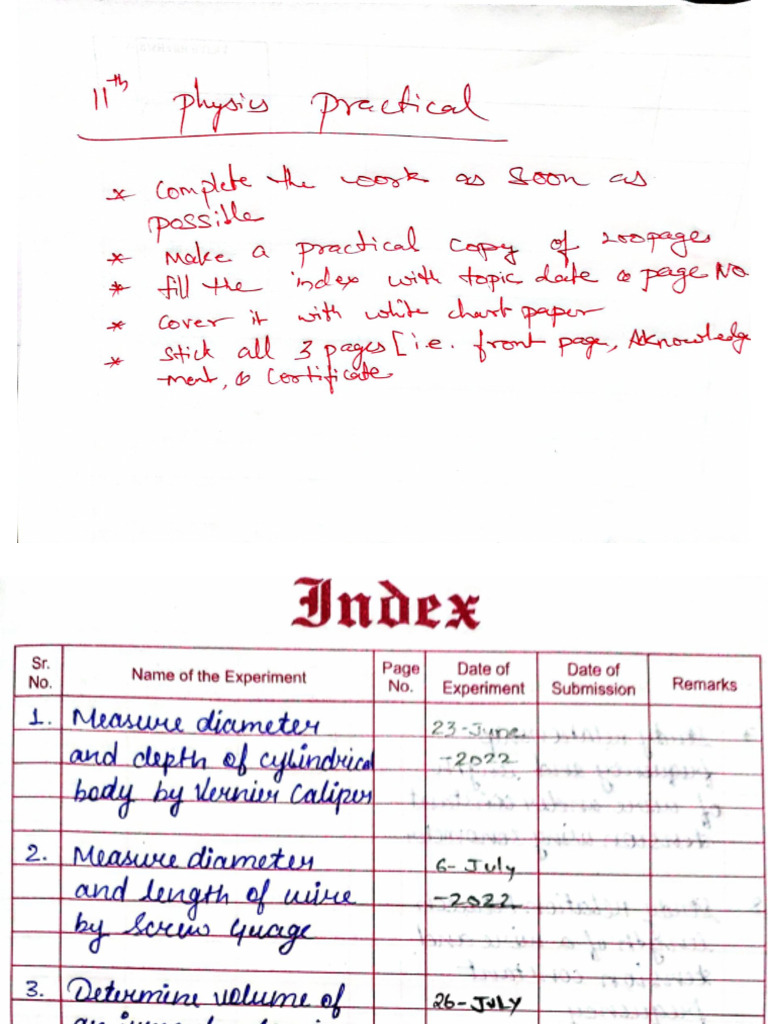 11th physics practical
* Complete the work as soon as
possible
* Make a practical copy of 200pages
* fill the index with topic date & page No.
* cover it with white chart paper
* stick all 3 pages [i.e. front page, Aknowledge
-ment, & Certificate
Index
Sr. No. Name of the Experiment Page No. Date of Experiment Date of Submission Remarks
1. Measure diameter 23-June
and depth of cylindrical -2022
body by Vernier Caliper
2. Measure diameter 6-July
and length of wire -2022
by Screw Guage
3. Determine volume of 26-JULY